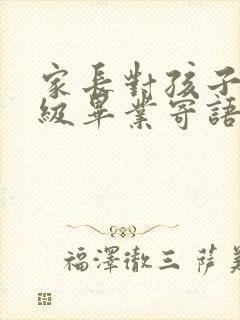 家長對孩子
級畢業寄語
福澤徹三 薩美